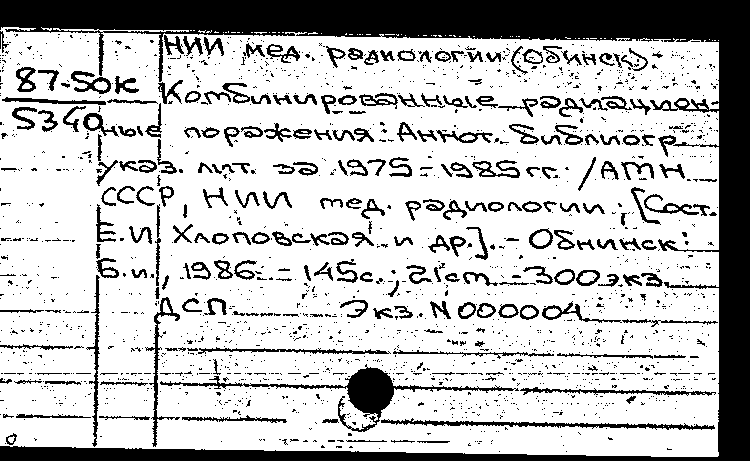 НИИ мед. радиологии (Обинск).
87-50к
5340
Комбинированные радиацион-
ные поражения: Аннот. библиогр.
указ. лит. за 1975-1985 гг. /АМН
СССР, НИИ мед. радиологии; [Сост.
Е.И. Хлоповская и др.]. - Обнинск:
Б.и., 1986. - 145с.; 21 см. - 300 экз.
ДСП. Экз. N 000004